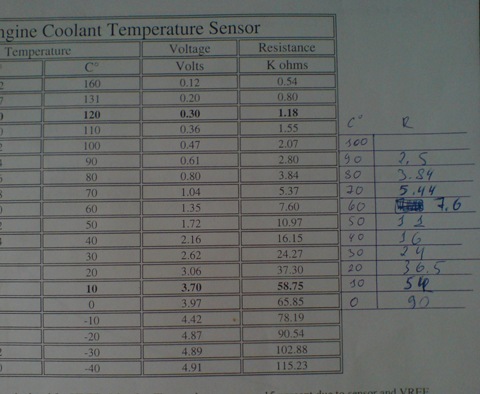 ngine Coolant Temperature Sensor
Temperature Voltage Resistance
C° Volts K ohms
160 0.12 0.54
131 0.20 0.80
120 0.30 1.18
110 0.36 1.55
100 0.47 2.07
90 0.61 2.80
80 0.80 3.84
70 1.04 5.37
60 1.35 7.60
50 1.72 10.97
40 2.16 16.15
30 2.62 24.27
20 3.06 37.30
10 3.70 58.75
0 3.97 65.85
-10 4.42 78.19
-20 4.87 90.54
-30 4.89 102.88
-40 4.91 115.23
C° R
100
90 2,5
80 3.84
70 5.44
60 7.6
50 11
40 16
30 24
20 36.5
10 54
0 90
due to sensor and VREF